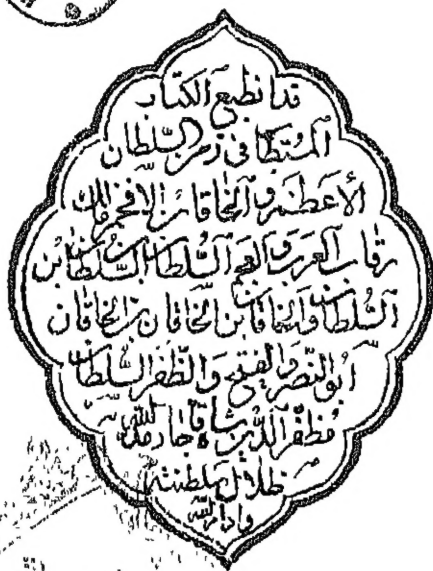 قد انطبع الكتاب
المستطاب فى زمن السلطان
الأعظم و الخاقان الافخم مالك
رقاب العرب و العجم السلطان بن السلطان بن
السلطان والخاقان بن الخاقان بن الخاقان
ابو النصر و الفتح و الظفر السلطان
مظفر الدين شاه قاجار مد الله
ظلال سلطنته
وادام الله